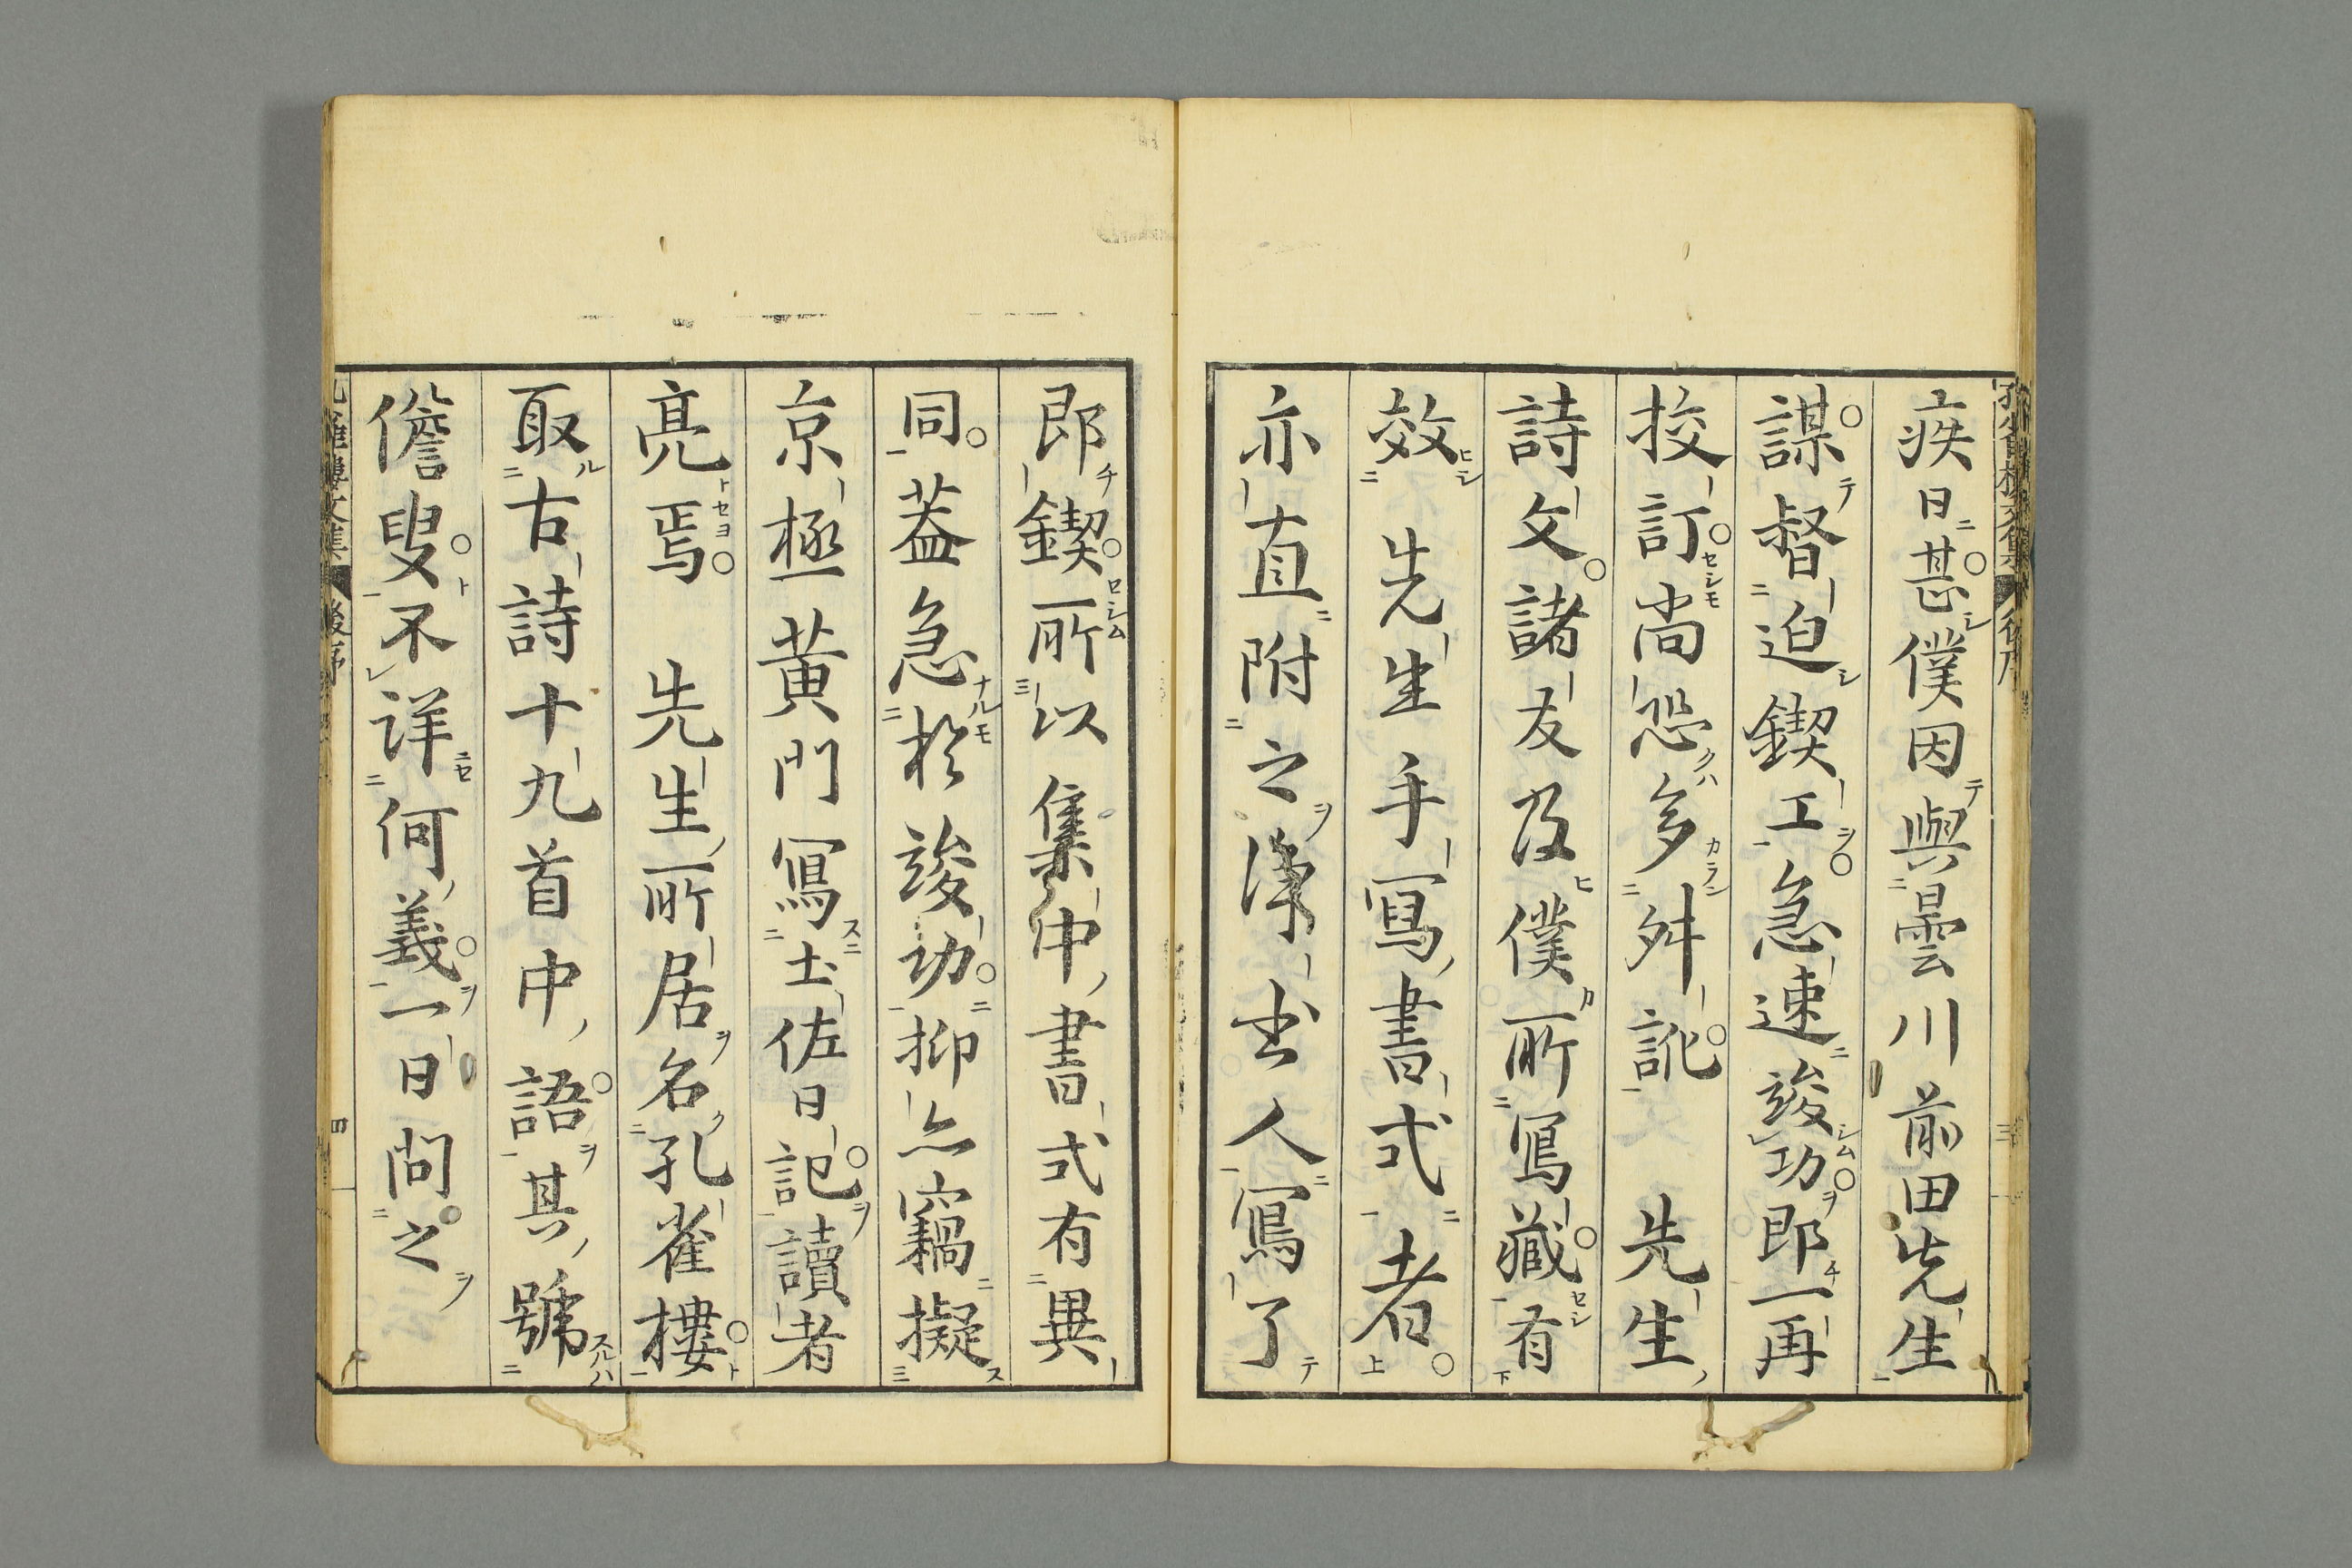 孔雀樓文集 後序 三
疾日甚僕因與曇川前田先生
謀督迫鍥工急速竣功即一再
挍訂尚恐多舛訛 先生
詩文諸友及僕所寫藏有
效 先生手寫書式者
亦直附之淨書人寫了
即鍥所以集中書式有異
同蓋急於竣功抑亦竊擬
京極黄門寫土佐日記讀者
亮焉 先生所居名孔雀樓
取古詩十九首中語其號
儋叟不詳何義一日問之
孔雀樓文集 後序 四